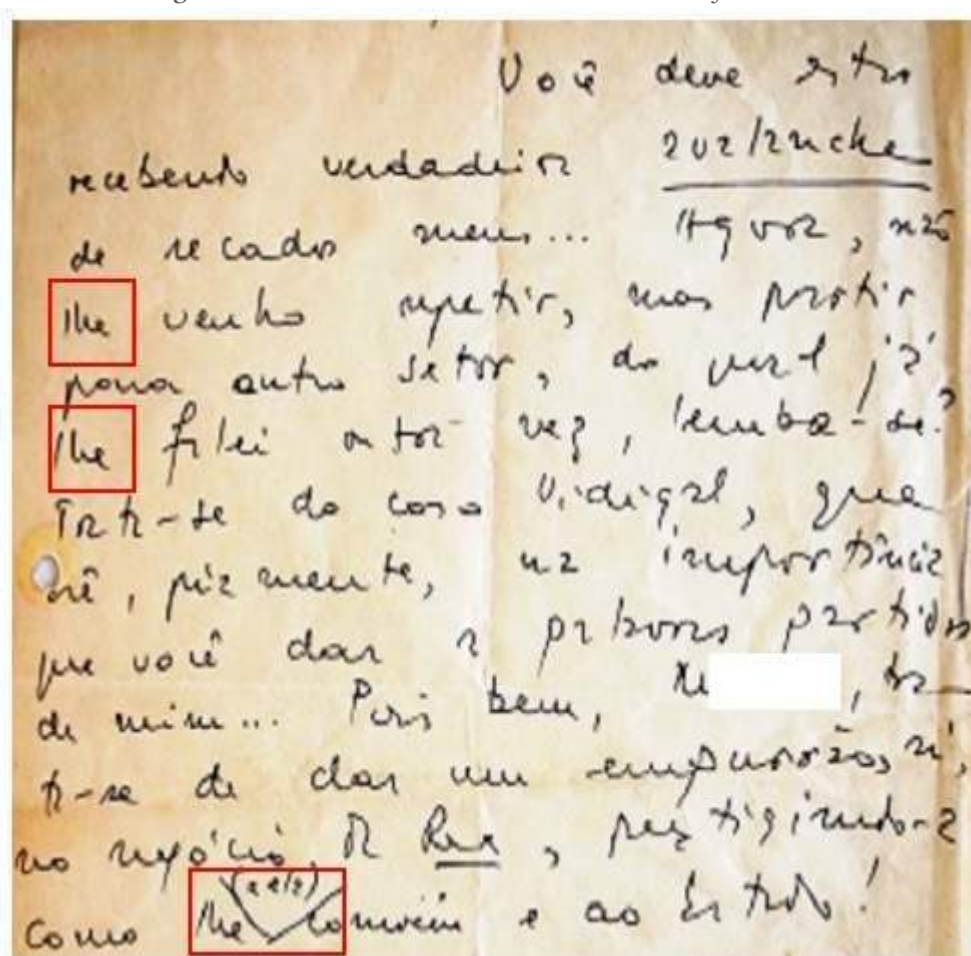 Você deve estar
recebendo verdadeira avalanche
de recados meus... Agora, não
lhe venho repetir, mas partir
para outro setor, do qual já
lhe falei outra vez, lembra-se?
Trata-se do caso Vidigal, que
crê, piamente, na importância
que você dar a palavras partidas
de mim... Pois bem, tra-
ta-se de dar um empurrãozão aí,
no negócio, prestigiando-a
como lhe (a ela) convém e ao Estado!